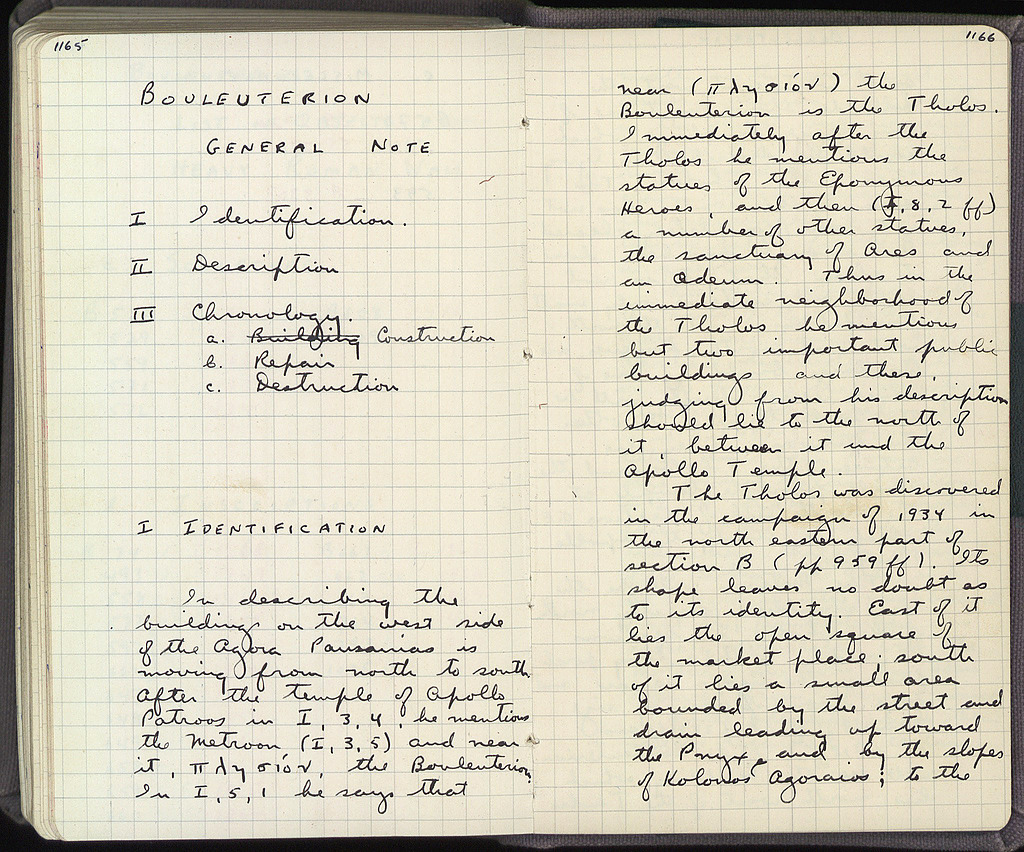 1165
BOULEUTERION
GENERAL NOTE
I Identification.
II Description
III Chronology.
a. Building Construction
b. Repair
c. Destruction
I IDENTIFICATION
In describing the
buildings on the west side
of the Agora Pausanias is
moving from north to south.
After the temple of Apollo
Patroos in I, 3, 4, he mentions
the Metroon (I, 3, 5) and near
it, πλησιόν, the Bouleuterion.
In I, 5, 1 he says that
1166
near (πλησιόν) the
Bouleuterion is the Tholos.
Immediately after the
Tholos he mentions the
statues of the Eponymous
Heroes, and then (I, 8, 2 ff)
a number of other statues,
the sanctuary of Ares and
an Odeum. Thus in the
immediate neighborhood of
the Tholos he mentions
but two important public
buildings and these,
judging from his description
should lie to the north of
it, between it and the
Apollo Temple.
The Tholos was discovered
in the campaign of 1934 in
the north eastern part of
section B (pp 959 ff). Its
shape leaves no doubt as
to its identity. East of it
lies the open square of
the market place; south
of it lies a small area
bounded by the street and
drain leading up toward
the Pnyx, and by the slopes
of Kolonos Agoraios; to the